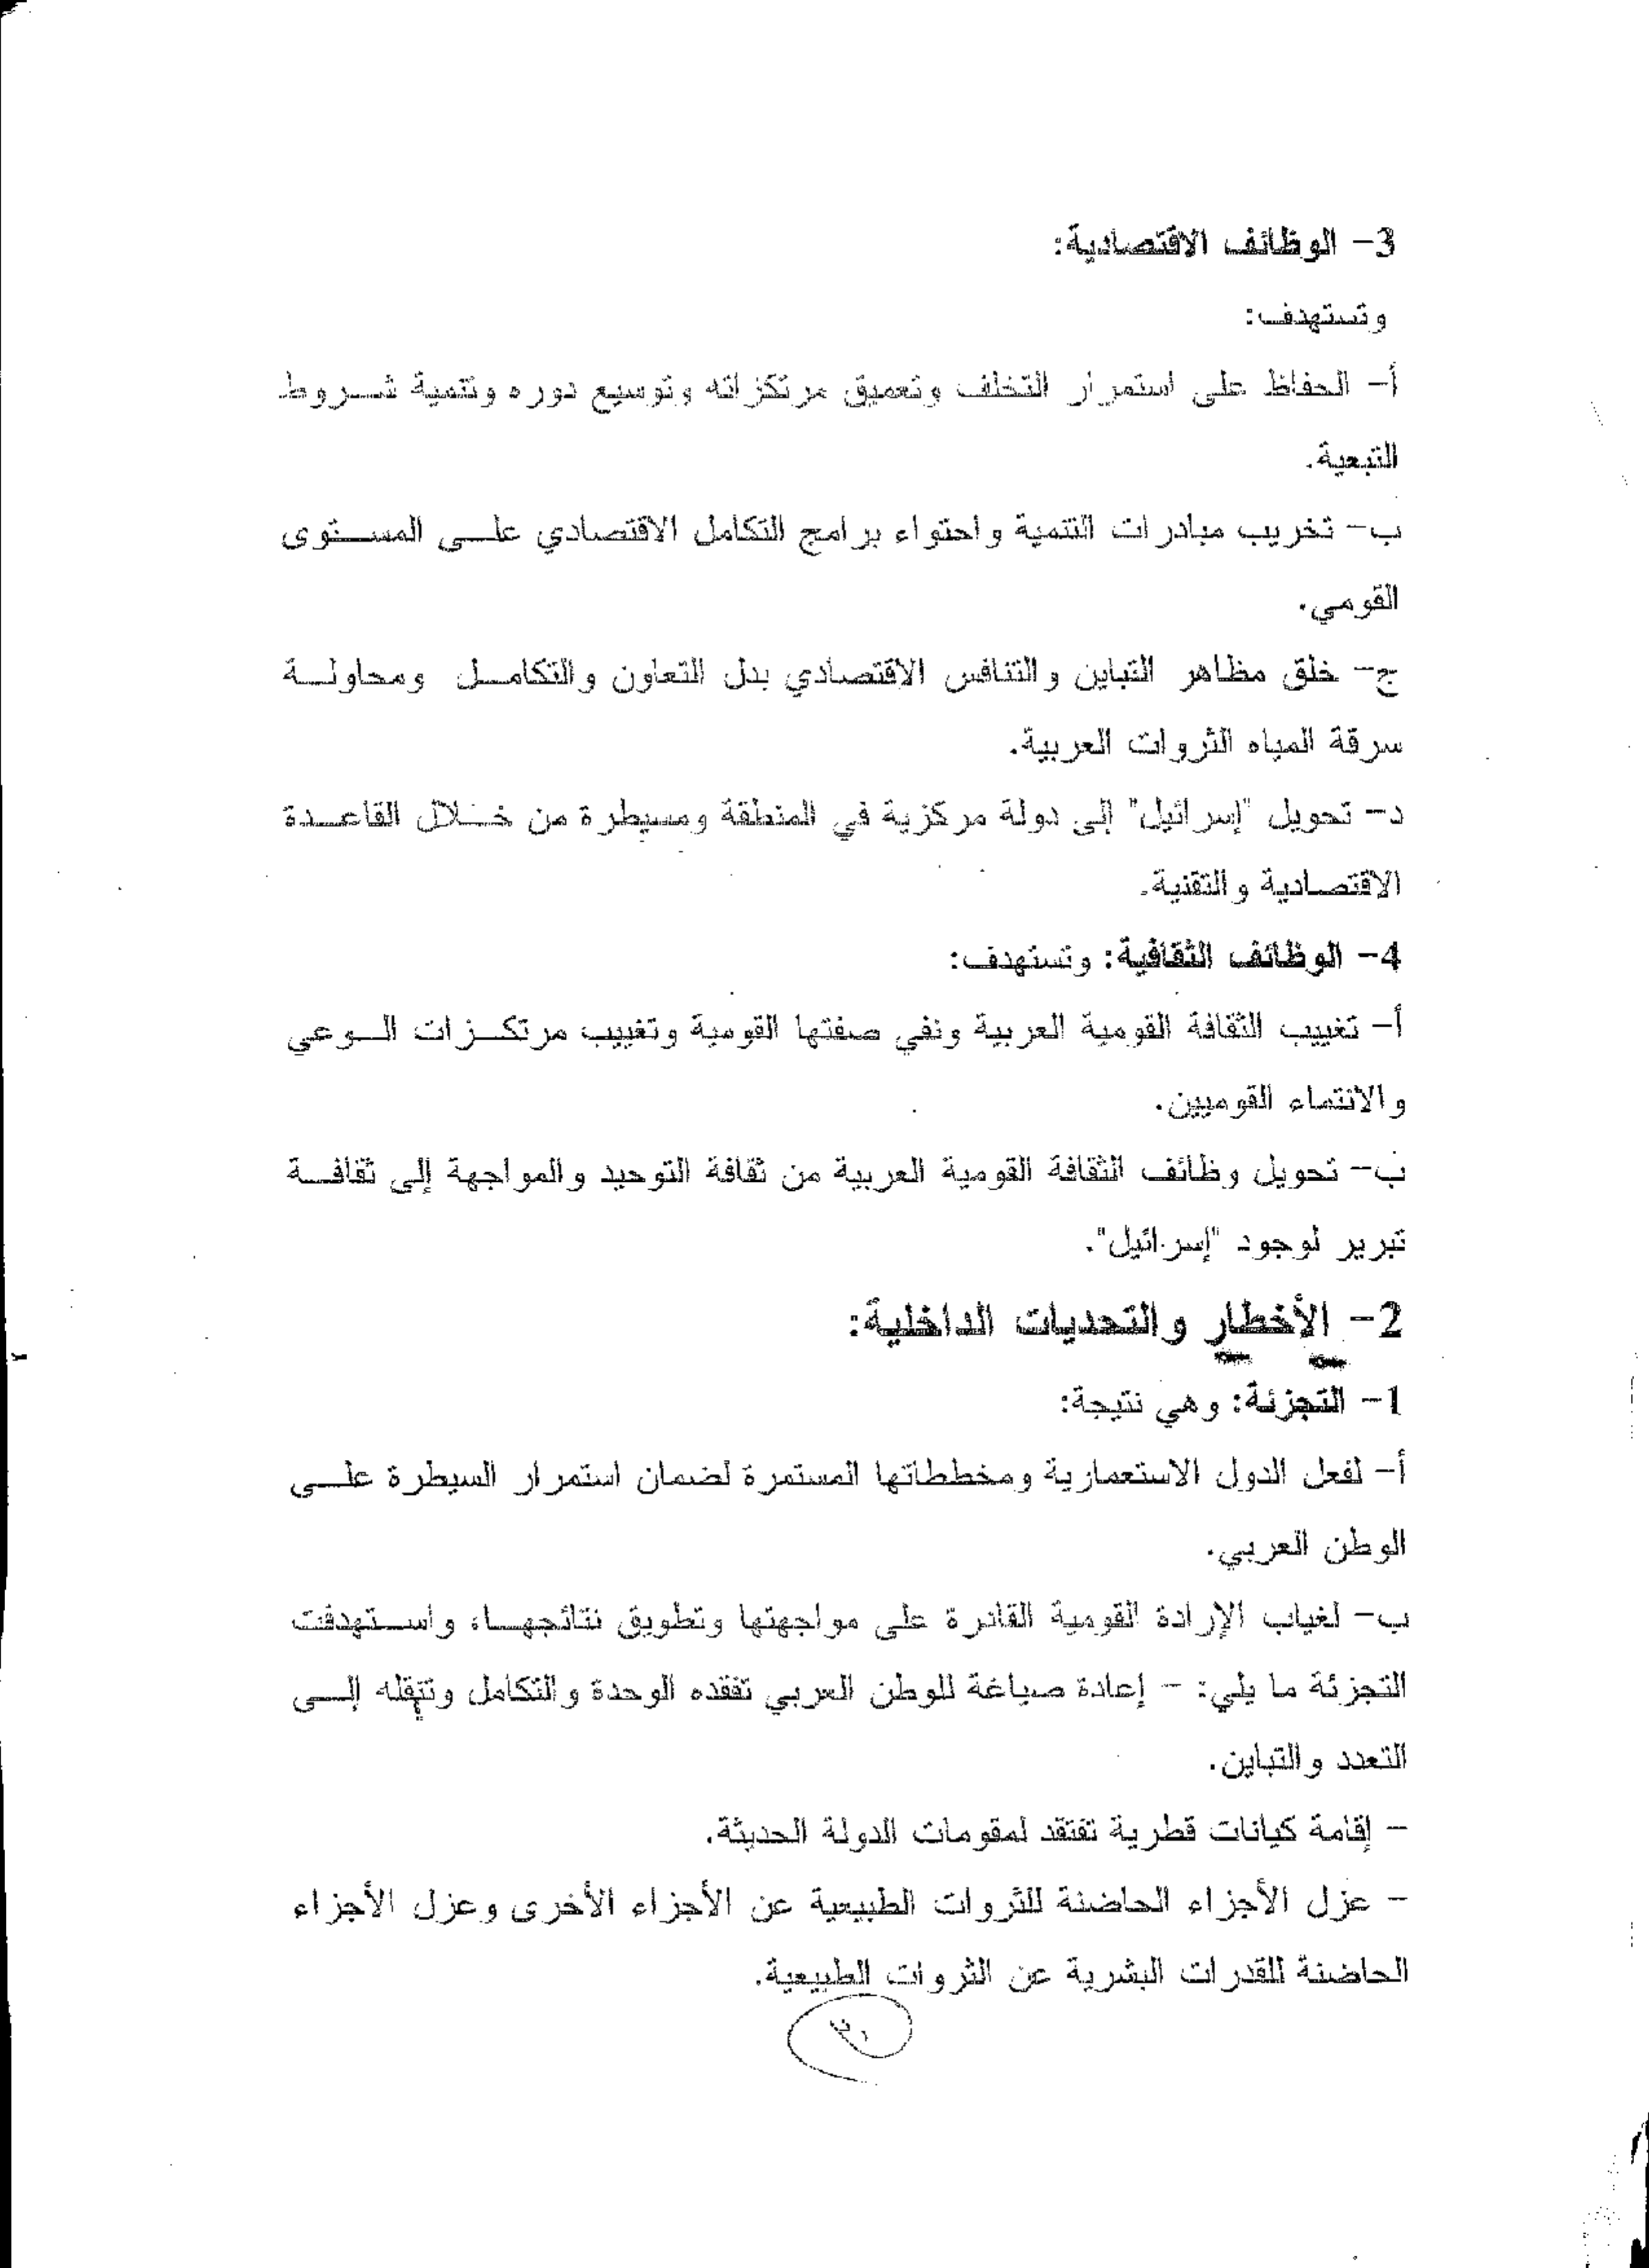 3- الوظائف الاقتصادية:
وتستهدف:
أ- الحفاظ على استمرار التخلف وتعميق مرتكزاته وتوسيع دوره وتنمية شروط
التبعية.
ب- تخريب مبادرات التنمية واحتواء برامج التكامل الاقتصادي على المستوى
القومي.
ج- خلق مظاهر التباين والتنافس الاقتصادي بدل التعاون والتكامل ومحاولة
سرقة المياه الثروات العربية.
د- تحويل "إسرائيل" إلى دولة مركزية في المنطقة ومسيطرة من خلال القاعدة
الاقتصادية والتقنية.
4- الوظائف الثقافية: وتستهدف:
أ- تغييب الثقافة القومية العربية ونفي صفتها القومية وتغييب مرتكزات الوعي
والانتماء القوميين.
ب- تحويل وظائف الثقافة القومية العربية من ثقافة التوحيد والمواجهة إلى ثقافة
تبرير لوجود "إسرائيل".
2- الأخطار والتحديات الداخلية:
1- التجزئة: وهي نتيجة:
أ- لفعل الدول الاستعمارية ومخططاتها المستمرة لضمان استمرار السيطرة على
الوطن العربي.
ب- لغياب الإرادة القومية القادرة على مواجهتها وتطويق نتائجها، واستهدفت
التجزئة ما يلي: - إعادة صياغة للوطن العربي تفقده الوحدة والتكامل وتنقله إلى
التعدد والتباين.
- إقامة كيانات قطرية تفتقد لمقومات الدولة الحديثة.
- عزل الأجزاء الحاضنة للثروات الطبيعية عن الأجزاء الأخرى وعزل الأجزاء
الحاضنة للقدرات البشرية عن الثروات الطبيعية.